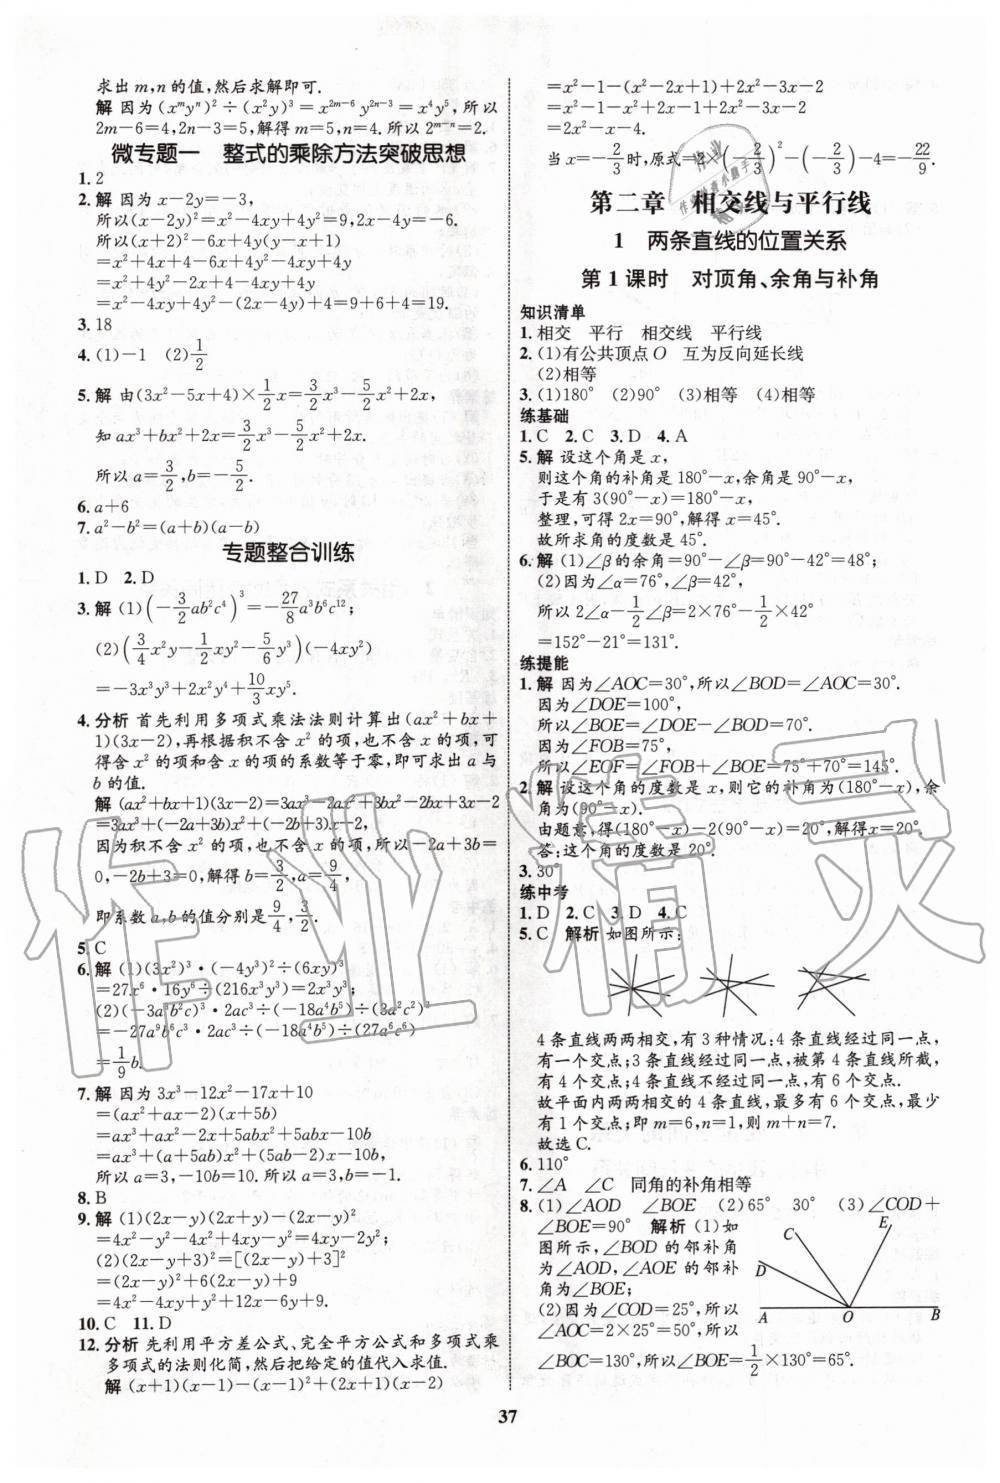 求出m,n的值,然后求解即可.
解 因为(x^m y^n)^2÷(x^2y)^3=x^{2m-6}y^{2n-3}=x^4y^5,所以
2m-6=4,2n-3=5,解得m=5,n=4.所以2^{m-n}=2.
微专题一 整式的乘除方法突破思想
1. 2
2. 解 因为x-2y=-3,
所以(x-2y)^2=x^2-4xy+4y^2=9,2x-4y=-6.
所以(x+2)^2-6x+4y(y-x+1)
=x^2+4x+4-6x+4y^2-4xy+4y
=x^2+4y^2-2x+4-4xy+4y
=x^2+4y^2-4xy-(2x-4y)+4=9+6+4=19.
3. 18
4. (1)-1 (2)1/2
5. 解 由(3x^2-5x+4)×1/2x=3/2x^3-5/2x^2+2x,
知ax^3+bx^2+2x=3/2x^3-5/2x^2+2x.
所以a=3/2,b=-5/2.
6. a+6
7. a^2-b^2=(a+b)(a-b)
专题整合训练
1. D 2. D
3. 解 (1)(-3/2ab^2c^4)^3=-27/8a^3b^6c^{12};
(2)(3/4x^2y-1/2xy-5/6y^3)(-4xy^2)
=-3x^3y^3+2x^2y^3+10/3xy^5.
4. 分析 首先利用多项式乘法法则计算出(ax^2+bx+
1)(3x-2),再根据积不含x^2的项,也不含x的项,可
得含x^2的项和含x的项的系数等于零,即可求出a与
b的值.
解 (ax^2+bx+1)(3x-2)=3ax^3-2ax^2+3bx^2-2bx+3x-2
=3ax^3+(-2a+3b)x^2+(-2b+3)x-2,
因为积不含x^2的项,也不含x的项,所以-2a+3b=
0,-2b+3=0,解得b=3/2,a=9/4,
即系数a,b的值分别是9/4,3/2.
5. C
6. 解 (1)(3x^2)^3·(-4y^3)^2÷(6xy)^3
=27x^6·16y^6÷(216x^3y^3)=2x^3y^3;
(2)(-3a^3b^2c)^3·2ac^3÷(-18a^4b^5)÷(3a^2c^2)^3
=-27a^9b^6c^3·2ac^3÷(-18a^4b^5)÷(27a^6c^6)
=1/9b.
7. 解 因为3x^3-12x^2-17x+10
=(ax^2+ax-2)(x+5b)
=ax^3+ax^2-2x+5abx^2+5abx-10b
=ax^3+(a+5ab)x^2+(5ab-2)x-10b,
所以a=3,-10b=10.所以a=3,b=-1.
8. B
9. 解 (1)(2x-y)(2x+y)-(2x-y)^2
=4x^2-y^2-4x^2+4xy-y^2=4xy-2y^2;
(2)(2x-y+3)^2=[(2x-y)+3]^2
=(2x-y)^2+6(2x-y)+9
=4x^2-4xy+y^2+12x-6y+9.
10. C 11. D
12. 分析 先利用平方差公式、完全平方公式和多项式乘
多项式的法则化简,然后把给定的值代入求值.
解 (x+1)(x-1)-(x-1)^2+(2x+1)(x-2)
=x^2-1-(x^2-2x+1)+2x^2-3x-2
=x^2-1-x^2+2x-1+2x^2-3x-2
=2x^2-x-4.
当x=-2/3时,原式=2×(-2/3)^2-(-2/3)-4=-22/9.
第二章 相交线与平行线
1 两条直线的位置关系
第1课时 对顶角、余角与补角
知识清单
1. 相交 平行 相交线 平行线
2. (1)有公共顶点O 互为反向延长线
(2)相等
3. (1)180° (2)90° (3)相等 (4)相等
练基础
1. C 2. C 3. D 4. A
5. 解 设这个角是x,
则这个角的补角是180°-x,余角是90°-x,
于是有3(90°-x)=180°-x,
整理,可得2x=90°,解得x=45°.
故所求角的度数是45°.
6. 解 (1)∠β的余角=90°-∠β=90°-42°=48°;
(2)因为∠α=76°,∠β=42°,
所以2∠α-1/2∠β=2×76°-1/2×42°
=152°-21°=131°.
练提能
1. 解 因为∠AOC=30°,所以∠BOD=∠AOC=30°.
因为∠DOE=100°,
所以∠BOE=∠DOE-∠BOD=70°.
因为∠FOB=75°,
所以∠EOF=∠FOB+∠BOE=75°+70°=145°.
2. 解 设这个角的度数是x,则它的补角为(180°-x),余
角为(90°-x).
由题意,得(180°-x)-2(90°-x)=20°,解得x=20°.
答:这个角的度数是20°.
3. 30°
练中考
1. D 2. C 3. D 4. C
5. C 解析 如图所示:
4条直线两两相交,有3种情况:4条直线经过同一点,
有一个交点;3条直线经过同一点,被第4条直线所截,
有4个交点;4条直线不经过同一点,有6个交点.
故平面内两两相交的4条直线,最多有6个交点,最少
有1个交点;即m=6,n=1,则m+n=7.
故选C.
6. 110°
7. ∠A ∠C 同角的补角相等
8. (1)∠AOD ∠BOE (2)65° 30° (3)∠COD+
∠BOE=90° 解析 (1)如
图所示,∠BOD的邻补角
为∠AOD,∠AOE的邻补
角为∠BOE;
(2)因为∠COD=25°,所以
∠AOC=2×25°=50°,所以
∠BOC=130°,所以∠BOE=1/2×130°=65°.
C
E
D
A
O
B
37
作业精灵